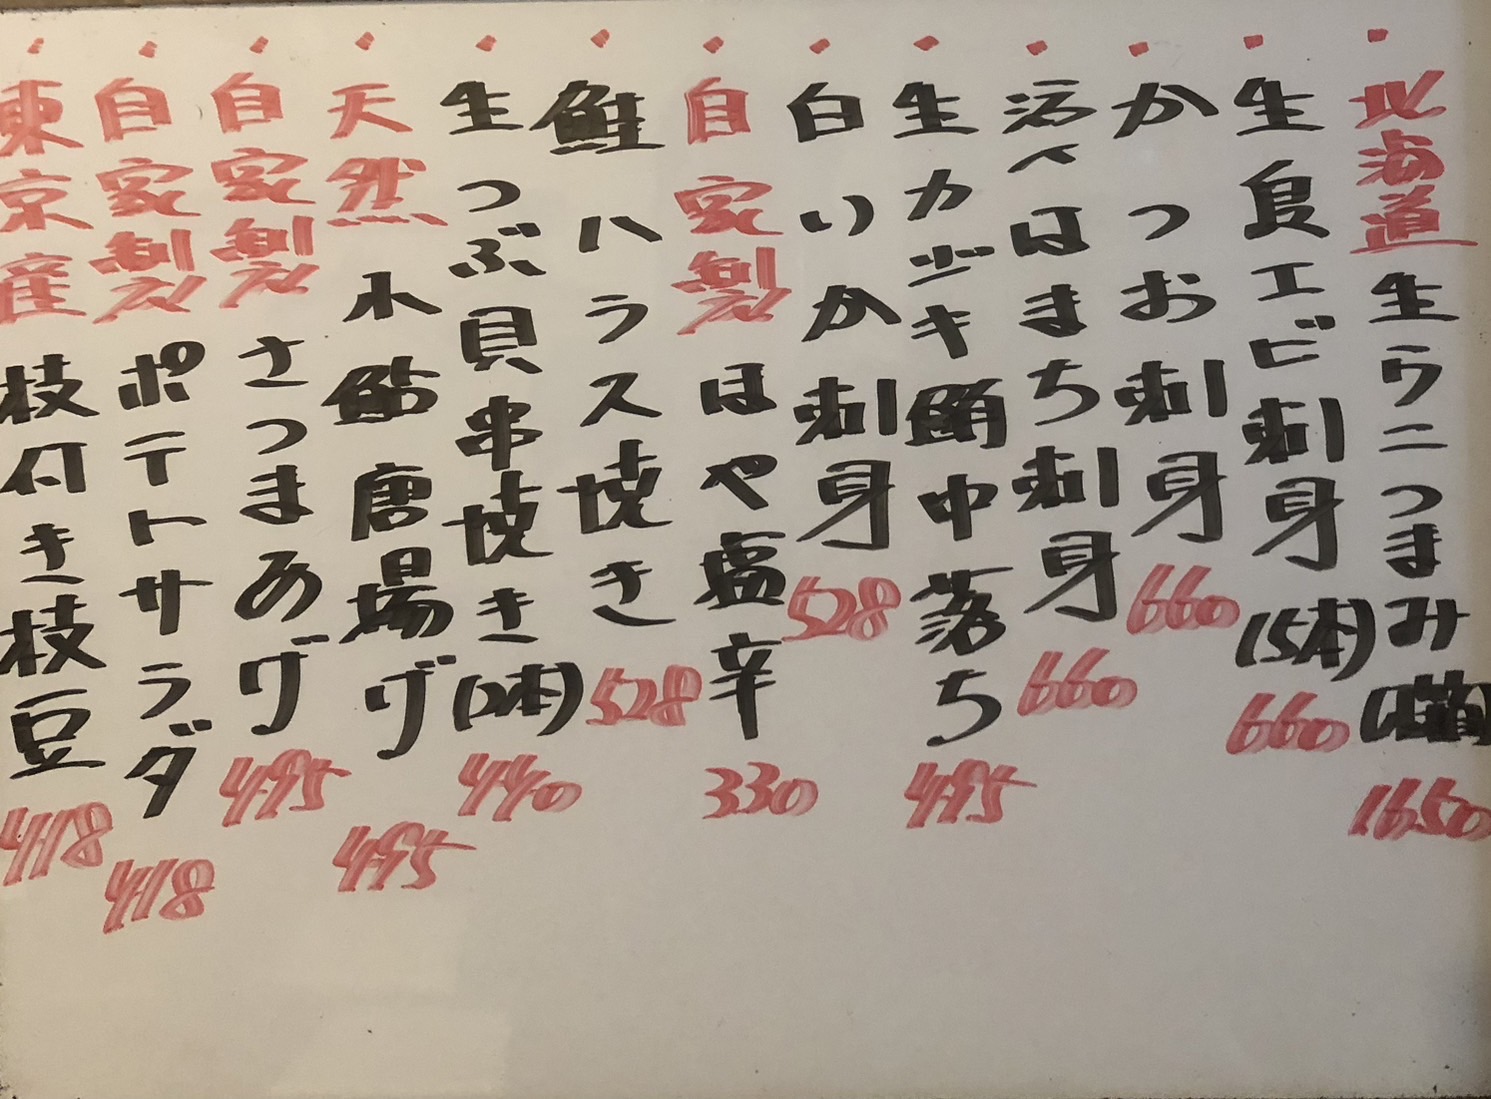 ・北海道生ウニつまみ 1650
・生食エビ刺身(5本) 660
・かつお刺身 660
・活〆はまち刺身 660
・生カジキ鮪中落ち 495
・白いか刺身 528
・自家製ほや塩辛 330
・鮭ハラス焼き 528
・生つぶ貝串焼き(2本) 440
・天然小鮎唐揚げ 495
・自家製さつまあげ 495
・自家製ポテトサラダ 418
・東京産枝付き枝豆 418